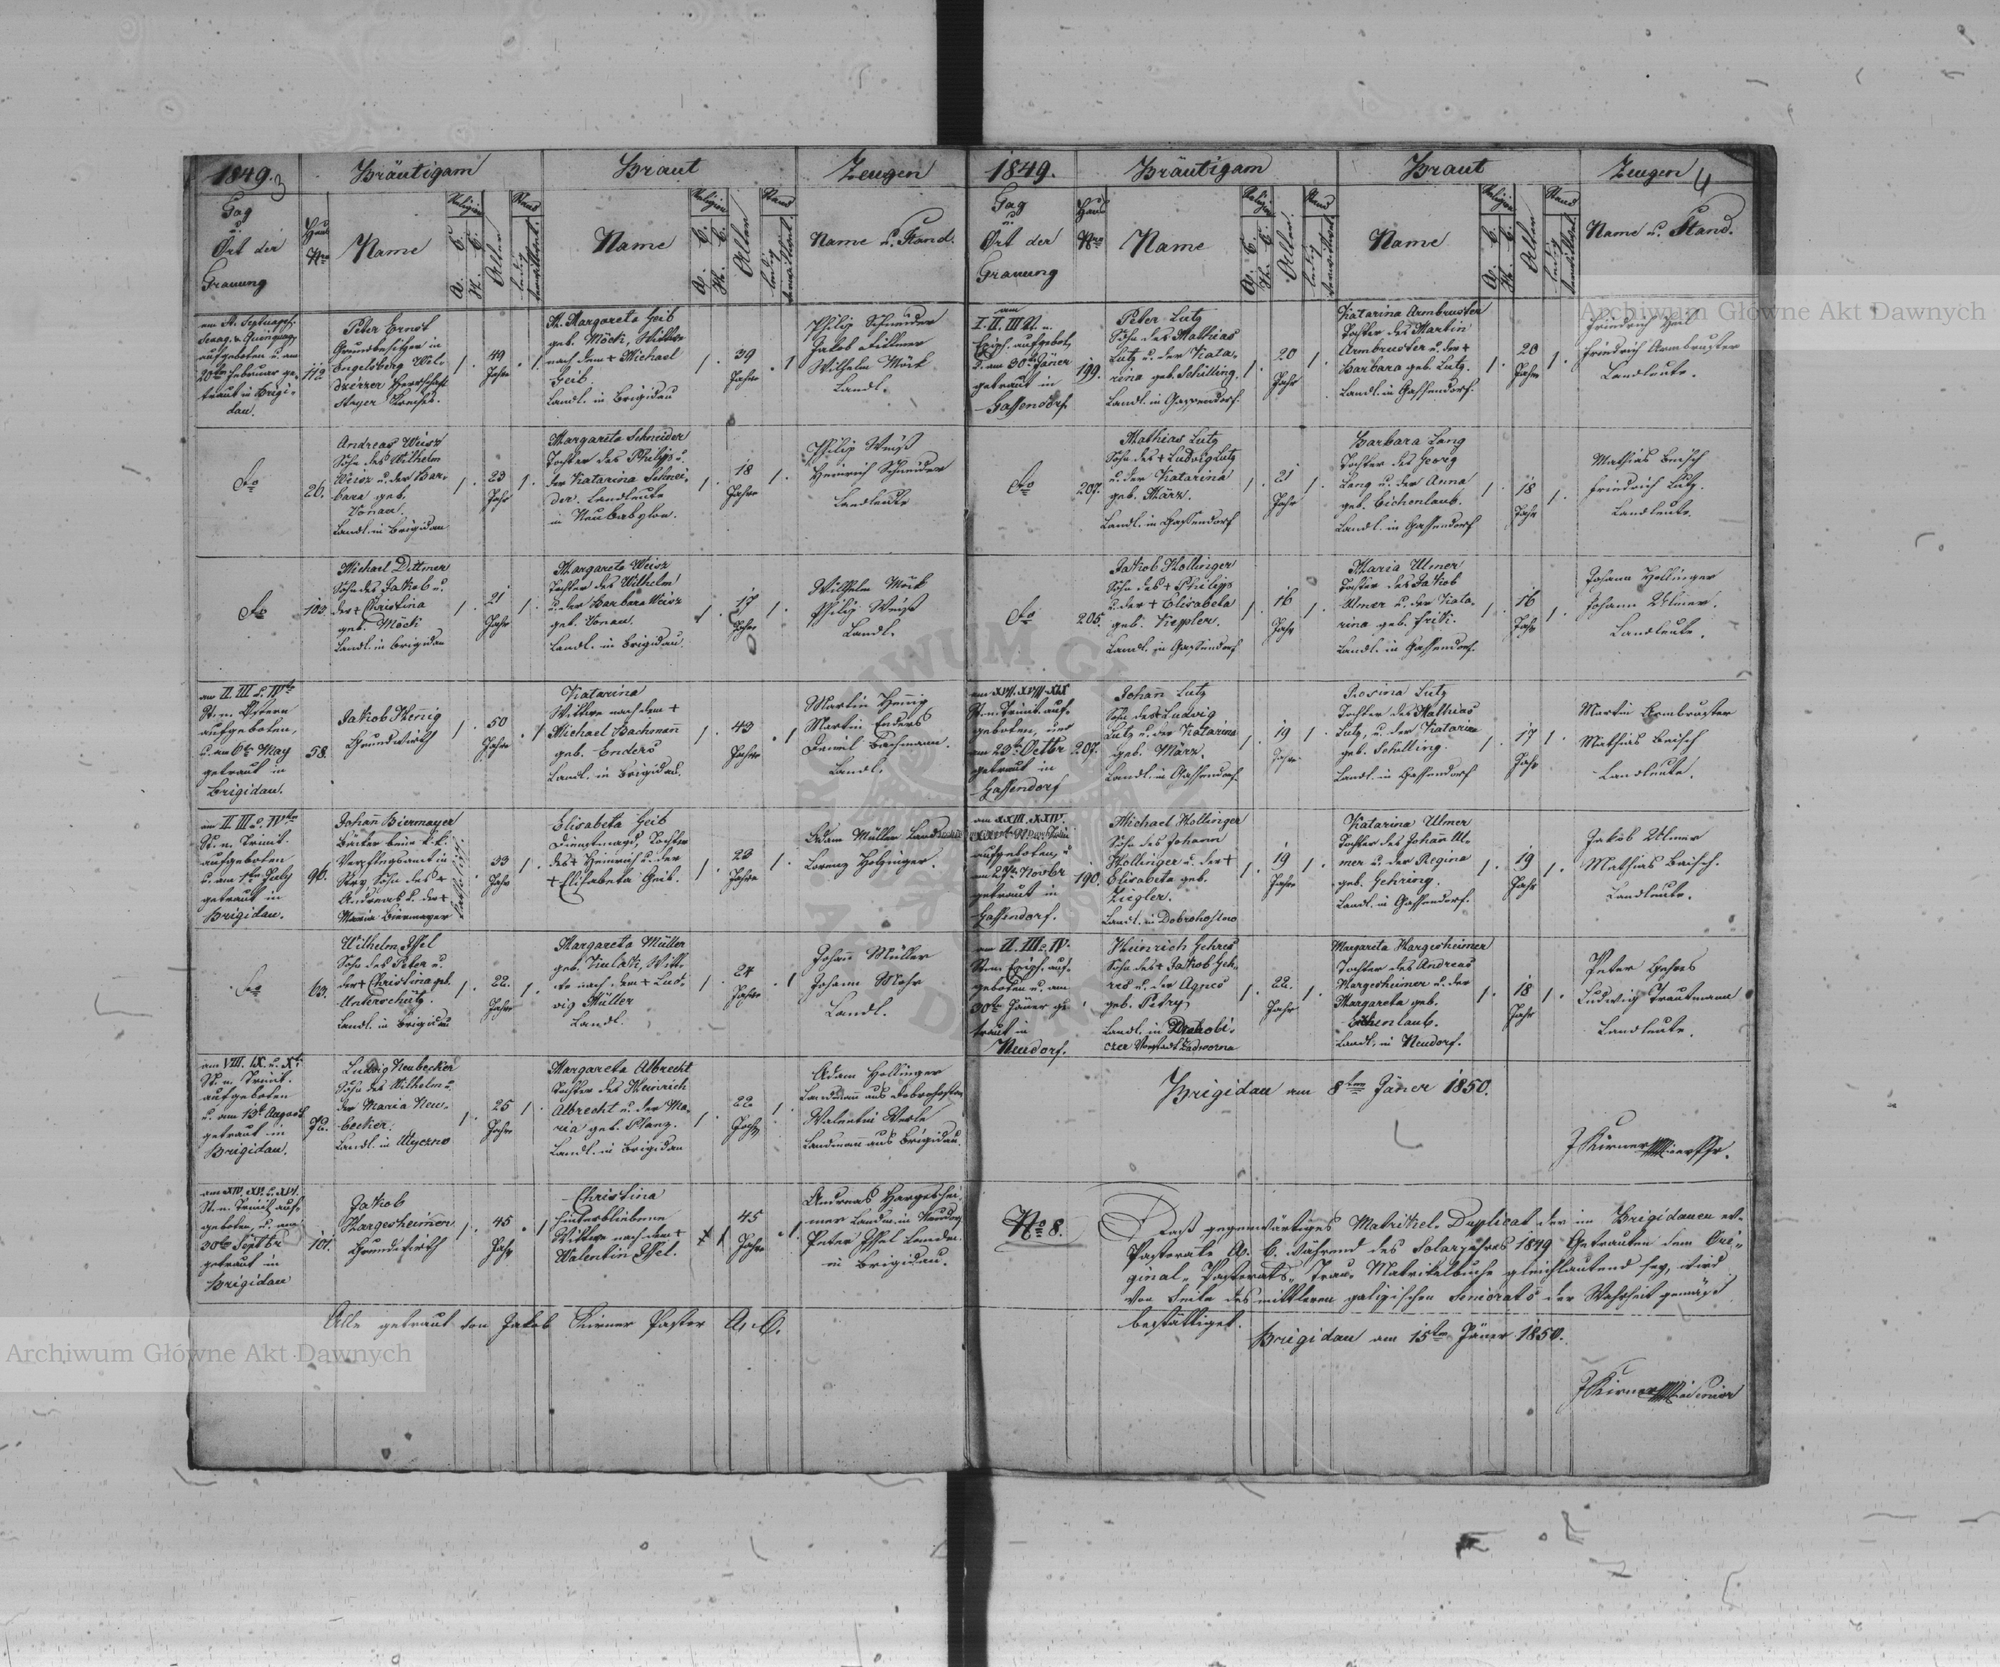 1849. 3
Bräutigam
Braut
Zeugen
Tag
u.
Ort der
Trauung
Haus
Nro
Name
Religion
A. C.
H. C.
Alter
Stand
ledig
verwittwet
Name
Religion
A. C.
H. C.
Alter
Stand
ledig
verwittwet
Name u. Stand.
am St. Septuages.
Sexag. u. Quinquag.
aufgeboten u. am
20ten Februar ge-
traut in Brigi-
dau.
112
Peter Ernst
Grundbesitzer in
Engelsberg
Herrschaft
Stryer Kreises.
1.
49
Jahre
1
A. Margareta Geib
geb. Möck, Wittwe
nach dem + Michael
Geib
Landl. in Brigidau
1.
39
Jahre
1
Philip Schneider
Jakob Dittmer
Wilhelm Möck
Landl.
do
26.
Andreas Weisz
Sohn des Wilhelm
Weisz u. der Bar-
bara geb.
Vonau.
Landl. in Brigidau
1.
23
Jahr
1.
Margareta Schneider
Tochter des Philip u.
der Katarina Schnei-
der. Landleute
in Neubabylon.
1.
18
Jahre
1.
Philip Weiß
Heinrich Schneider
Landleute
do
102.
Michael Dittmer
Sohn des Jakob u.
der + Christina
geb. Möck
Landl. in Brigidau
1.
21
Jahr
1.
Margareta Weisz
Tochter des Wilhelm
u. der Barbara Weisz
geb. Vonau.
Landl. in Brigidau.
1.
17
Jahre
1.
Wilhelm Möck
Philip Weiß
Landl.
am II. III u. IVten
St. n. Ostern
aufgeboten,
u. am 6ten May
getraut in
Brigidau.
58.
Jakob Hennig
Grundwirth
1.
50
Jahre
1
Katarina
Wittwe nach dem +
Michael Bachmann
geb. Enders
Landl. in Brigidau.
1.
43
Jahre
1
Martin Hennig
Martin Enders
Daniel Bachmann.
Landl.
am II III u. IVten
St. n. Trinit.
aufgeboten
u. am 1ten July
getraut in
Brigidau.
96.
Johann Biermayer
Bäcker beim k. k.
Verpflegsamt in
Stry Sohn des +
Andreas u. der +
Maria Biermayer
33
Jahr
1.
Elisabeta Geib
Dienstmagd, Tochter
des + Heinrich u. der
+ Elisabeta Geib.
1.
23
Jahre
1.
Adam Müller Landmann
Lorenz Holzinger.
do
63.
Wilhelm Essel
Sohn des Peter u.
der + Christina geb.
Unterschütz.
Landl. in Brigidau
1.
22.
Jahre
1.
Margareta Müller
geb. Kulak, Witt-
we nach dem + Lud-
wig Müller
Landl.
1.
24
Jahre
1
Johann Müller
Johann Mohr
Landl.
am VIII. IX. u. Xt.
St. n. Trinit.
aufgeboten
u. am 13t August
getraut in
Brigidau.
72.
Ludwig Neubecker
Sohn des Wilhelm u.
der Maria Neu-
becker.
Landl. in Ugerzno
1.
25
Jahre
1.
Margareta Albrecht
Tochter des Heinrich
Albrecht u. der Ma-
ria geb. Manz.
Landl. in Brigidau
1.
22
Jahr
1.
Adam Hollinger
Landmann aus Dobrohostow
Valentin Werle
Landmann aus Brigidau.
am XIV. XV. u. XVI.
St. n. Trinit. auf-
geboten, u. am
30ten Septbr.
getraut in
Brigidau
101.
Jakob
Hargesheimer
Grundwirth
1.
45
Jahr
1
Christina
hinterbliebene
Wittwe nach dem +
Valentin Essel.
1
45
Jahre
1.
Andreas Hargeshei-
mer Landm. in Neudorf
Peter Essel Landm.
in Brigidau.
Alle getraut von Jakob Kürner Pastor A. C.
1849.
Bräutigam
Braut
Zeugen 4
Tag
u.
Ort der
Trauung
Haus
Nro
Name
Religion
A. C.
H. C.
Alter
Stand
ledig
verwittwet
Name
Religion
A. C.
H. C.
Alter
Stand
ledig
verwittwet
Name u. Stand.
am
I. II. III St. n.
Epiph. aufgebot.
u. am 30ten Jäner
getraut in
Gassendorf
199.
Peter Lutz
Sohn des Mathias
Lutz u. der Kata-
rina geb. Schilling.
Landl. in Gassendorf.
1.
20
Jahr
1.
Katarina Armbruster
Tochter des Martin
Armbruster u. der +
Barbara geb. Lutz.
Landl. in Gassendorf.
1.
20
Jahre
1.
Friedrich Heil
Friedrich Armbruster
Landleute.
do
207.
Mathias Lutz
Sohn des + Ludwig Lutz
u. der Katarina
geb. März.
Landl. in Gassendorf
1.
21
Jahr
1.
Barbara Lang
Tochter des Georg
Lang u. der Anna
geb. Eichenlaub.
Landl. in Gassendorf
1.
18
Jahr
1.
Mathias Baisch
Friedrich Lutz.
Landleute.
do
205.
Jakob Hollinger
Sohn des + Philipp
u. der + Elisabeta
geb. Keppler.
Landl. in Gassendorf
1.
16
Jahr
1.
Maria Ulmer
Tochter des Jakob
Ulmer u. der Kata-
rina geb. Frik.
Landl. in Gassendorf.
1.
16
Jahr
1.
Johann Hollinger
Johann Ulmer.
Landleute.
am XVII. XVIII XIX
St. n. Trinit. auf-
geboten, und
am 22ten Octbr
getraut in
Gassendorf
207.
Johann Lutz
Sohn des + Ludwig
Lutz u. der Katarina
geb. März.
Landl. in Gassendorf.
1.
19
Jahre
1.
Rosina Lutz
Tochter des Mathias
Lutz, u. der Katarina
geb. Schilling.
Landl. in Gassendorf
1.
17
Jahr
1.
Martin Armbruster
Mathias Baisch
Landleute.
am XXIII. XXIV.
aufgeboten, u.
Novbr
getraut in
Gassendorf.
190.
Michael Hollinger
Sohn des Johann
Hollinger u. der +
Elisabeta geb.
Ziegler.
Landl. in Dobrohostow
1.
19
Jahre
1.
Katarina Ulmer
Tochter des Johann Ul-
mer u. der Regina
geb. Gehring.
Landl. in Gassendorf.
1.
19
Jahr
1.
Jakob Ulmer
Mathias Baisch.
Landleute.
am II. III u. IV.
St. n. Epiph. auf-
geboten u. am
30ten Jäner ge-
traut in
Neudorf.
Heinrich Gehres
Sohn des + Jakob Geh-
res u. der Agnes
geb. Petry,
Landl. in Drohobi-
czer Vorstadt Zadworna
1.
22.
Jahr
1.
Margareta Hargesheimer
Tochter des Andreas
Hargesheimer u. der
Margareta geb.
Eichenlaub.
Landl. in Neudorf.
1.
18
Jahr
1.
Peter Gehres
Ludwig Trautmann
Landleute.
Brigidau am 8ten Jäner 1850.
J Kürner Pfr.
No 8.
Daß gegenwärtiges Matrikel-Duplicat der im Brigidauer ev.
Pastorate A. C. während des Solarjahres 1849 Getrauten dem Ori-
ginal-Pastorats-Trau-Matrikelbuche gleichlautend sey, wird
von Seite des mittleren galizischen Seniorats der Wahrheit gemäß
bestättiget.
Brigidau am 15ten Jäner 1850.
J Kürner Senior
Archiwum Główne Akt Dawnych
Archiwum Główne Akt Dawnych